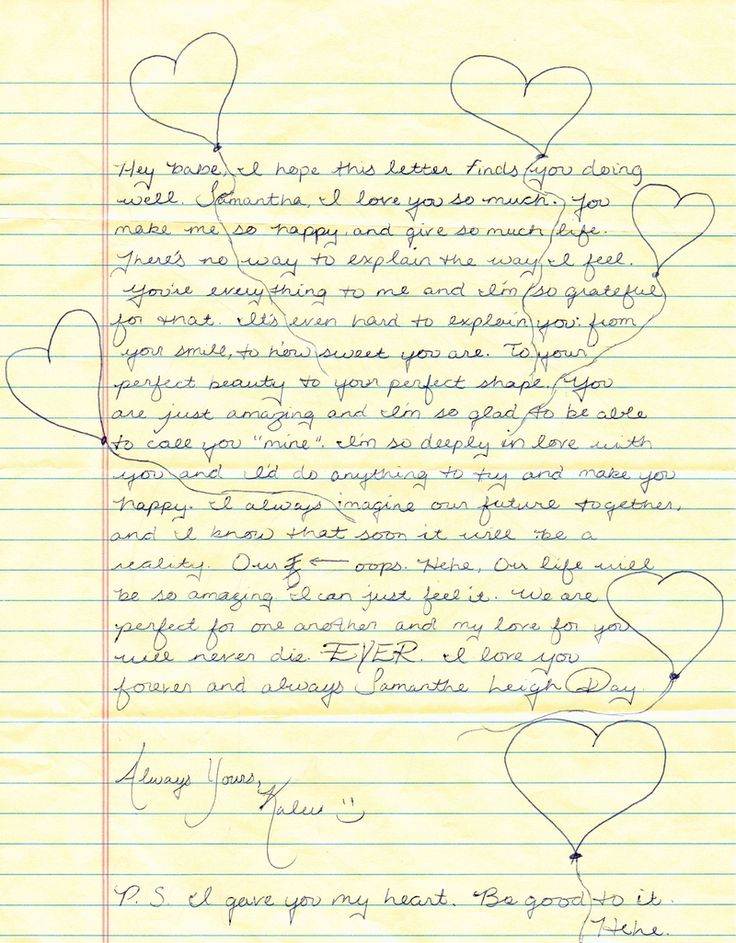 Hey babe, I hope this letter finds you doing
well. Samantha, I love you so much. You
make me so happy, and give so much life.
There's no way to explain the way I feel.
You're everything to me and I'm so grateful
for that. It's even hard to explain you: from
your smile, to how sweet you are. To your
perfect beauty to your perfect shape. You
are just amazing and I'm so glad to be able
to call you "mine". I'm so deeply in love with
you and I'd do anything to try and make you
happy. I always imagine our future together,
and I know that soon it will be a
reality. Our ← oops. Hehe, Our life will
be so amazing I can just feel it. We are
perfect for one another and my love for you
will never die. EVER. I love you
forever and always Samantha Leigh Day.
Always Yours,
P.S. I gave you my heart. Be good to it.
Hehe.